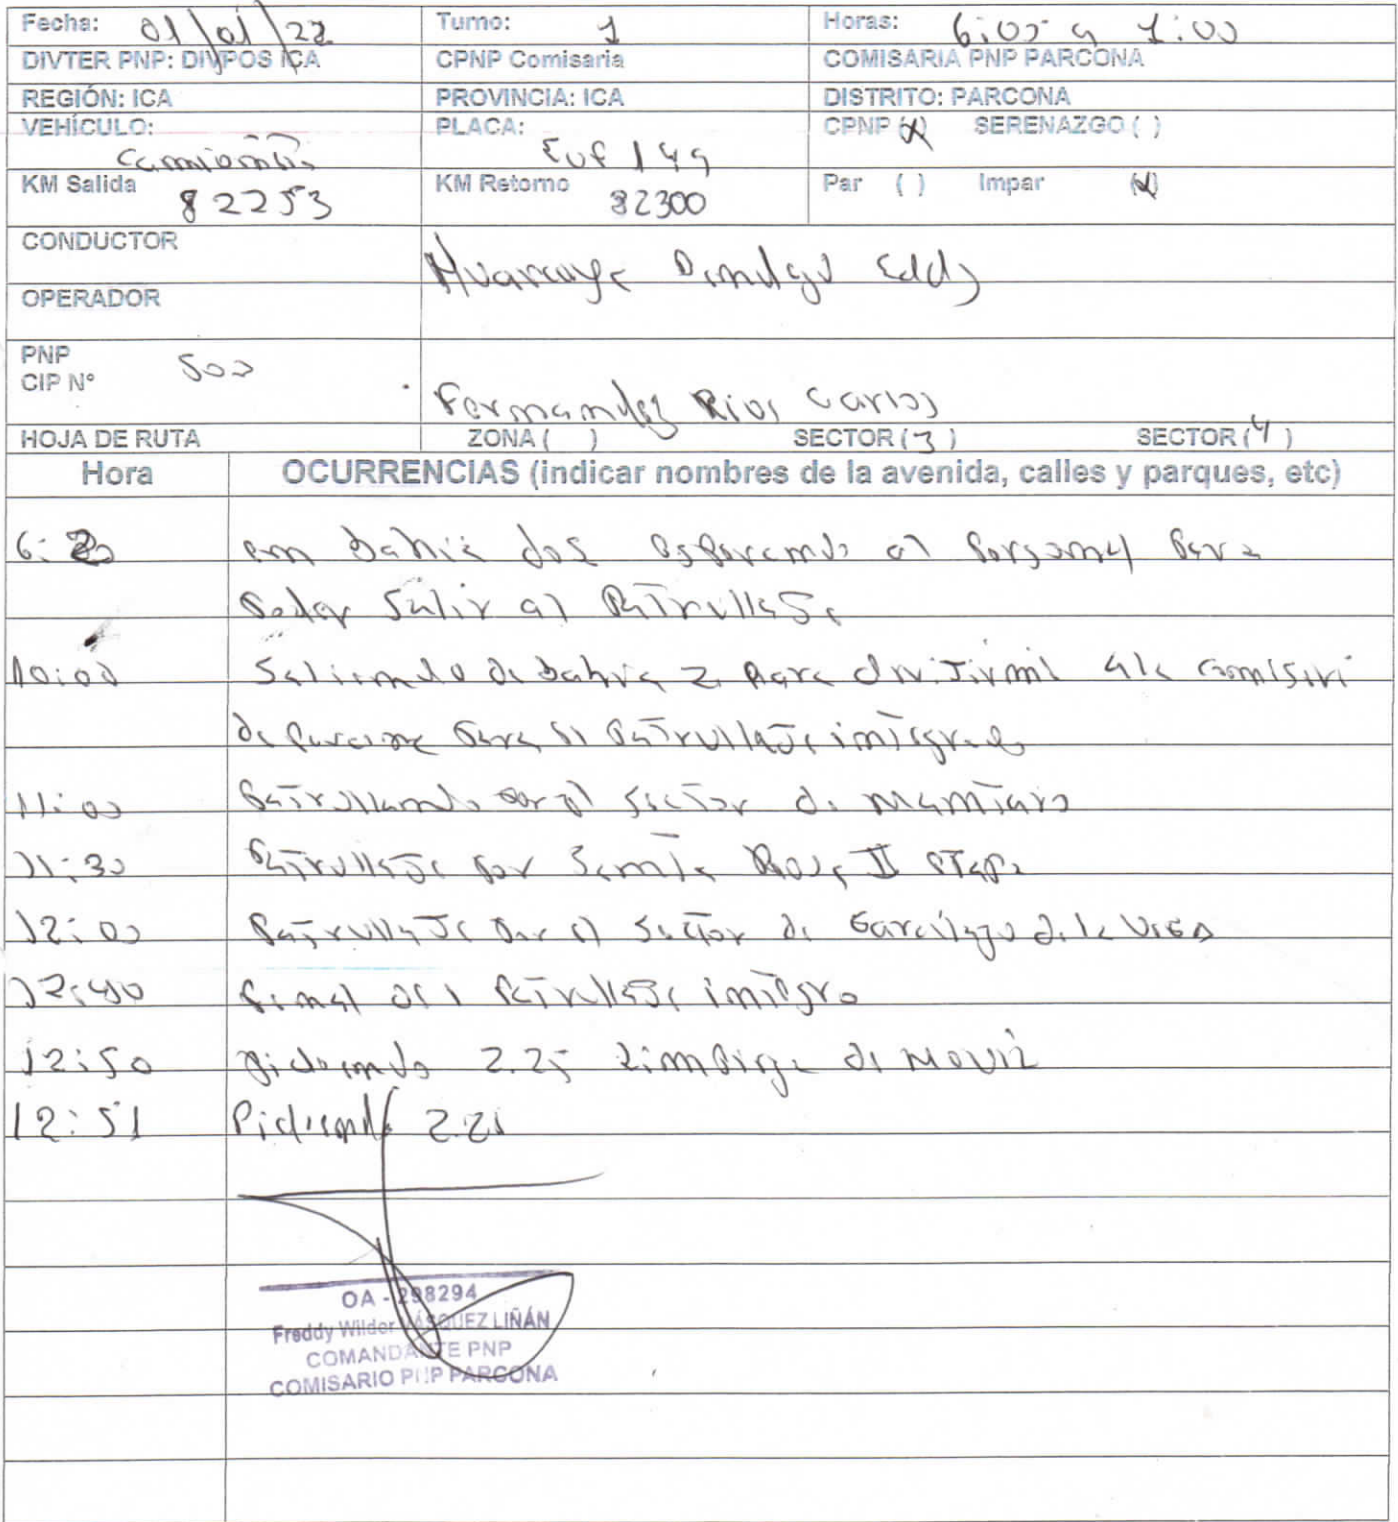 Fecha: 01/01/22 Turno: 1 Horas: 6:00 a 1:00
DIVTER PNP: DIVPOS ICA CPNP Comisaria COMISARIA PNP PARCONA
REGIÓN: ICA PROVINCIA: ICA DISTRITO: PARCONA
VEHÍCULO: PLACA: CPNP (x) SERENAZGO ( )
Camioneta
KM Salida 82253 KM Retorno 82300 Par ( ) Impar (x)
CONDUCTOR Eddy
OPERADOR
PNP 500
CIP N°
Fernandez Rios Carlos
HOJA DE RUTA ZONA ( ) SECTOR (3) SECTOR (4)
Hora OCURRENCIAS (indicar nombres de la avenida, calles y parques, etc)
6:20 en bahia dos esperando al personal para
poder salir al Patrullaje
10:00 Saliendo de bahia 2 para a la comisari
de parcona para el patrullaje integrado
11:00 patrullando por el sector de
11:30 patrullaje por Santa Rosa II etapa
12:00 patrullaje por el sector de Garcilazo de la Vega
12:40 final del patrullaje integro
12:50 pidiendo 2.25 limpieza de movil
12:51 Pidiendo
OA - 298294
Freddy Wilder VÁSQUEZ LIÑÁN
COMANDANTE PNP
COMISARIO PNP PARCONA